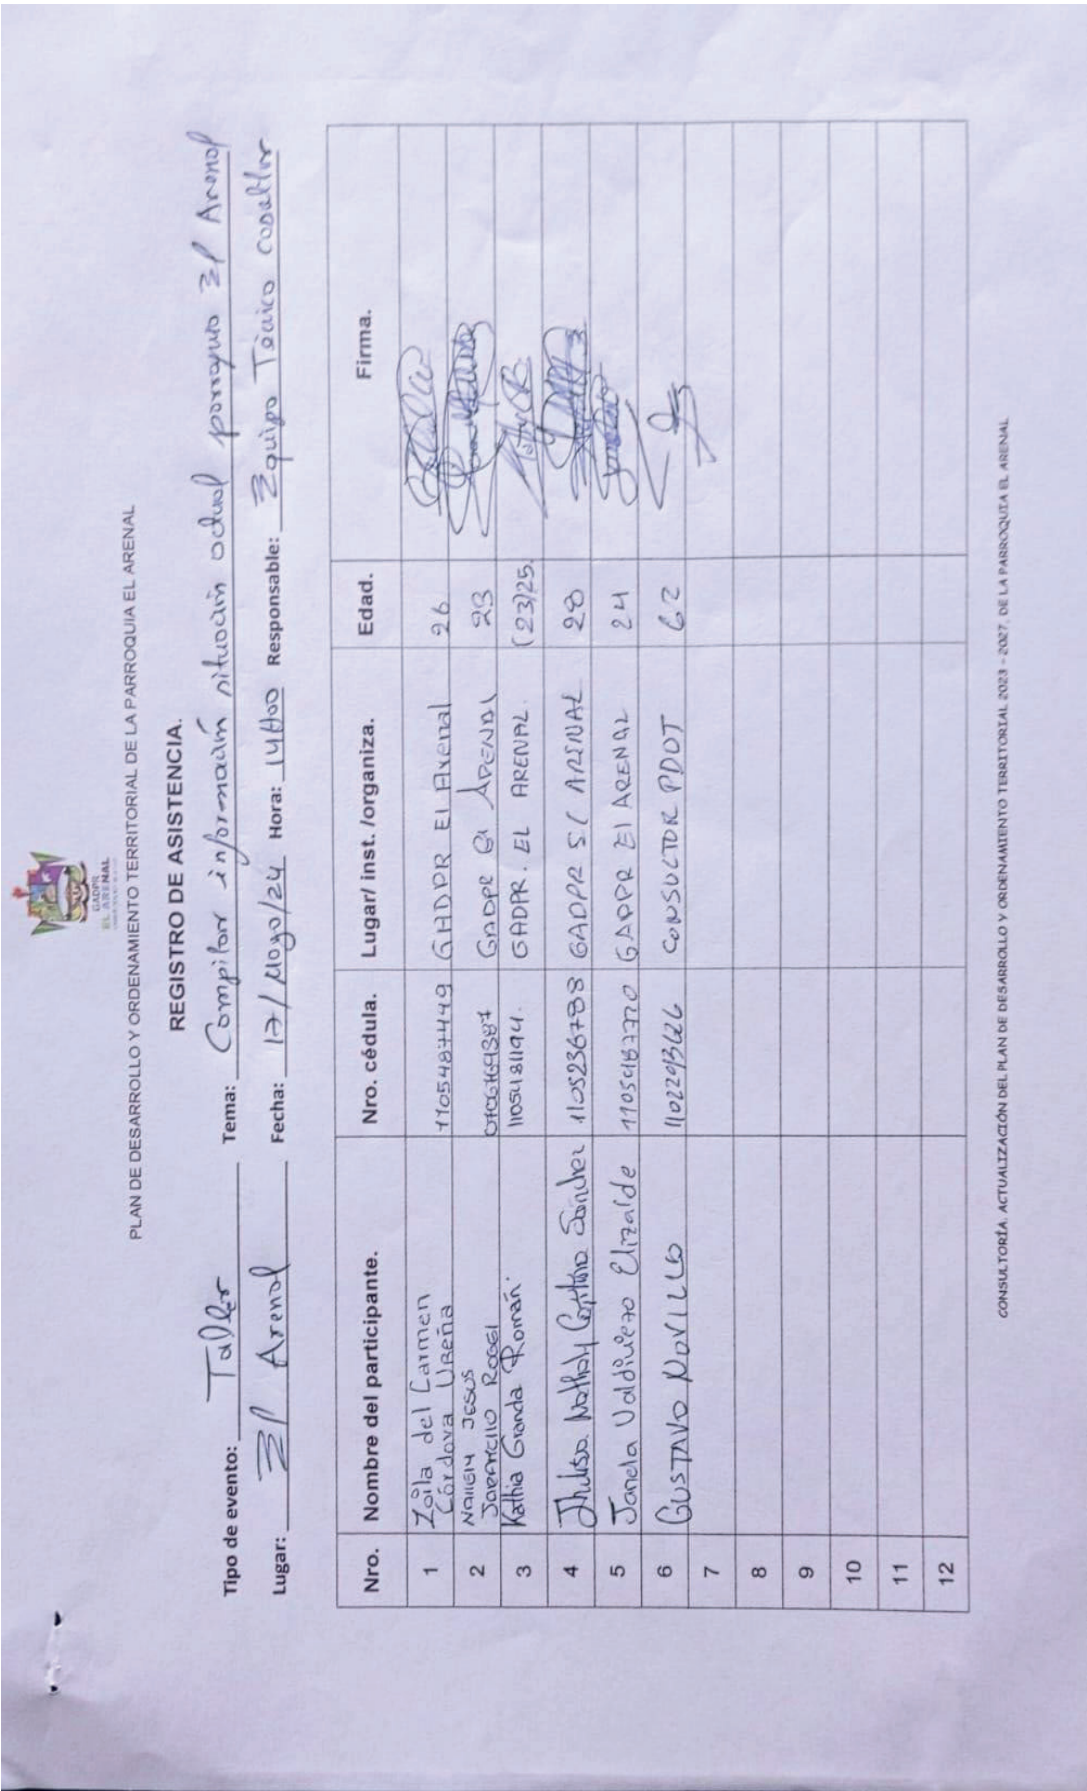 GADPR
EL ARENAL
PLAN DE DESARROLLO Y ORDENAMIENTO TERRITORIAL DE LA PARROQUIA EL ARENAL
REGISTRO DE ASISTENCIA.
Tipo de evento: Taller Tema: Compilar información situación actual parroquia El Arenal
Lugar: El Arenal Fecha: 17/Mayo/24 Hora: 14H00 Responsable: Equipo Técnico
Nro. Nombre del participante. Nro. cédula. Lugar/ inst. /organiza. Edad. Firma.
1 Zoila del Carmen Córdova Ureña 1105487449 GADPR El Arenal 26
2 JESUS JARAMILLO GADPR El ARENAL 23
3 Kathia Granda Román. 1105481194. GADPR. EL ARENAL. (23/25.
4 Nathaly Sánchez 1105236788 GADPR El ARENAL 28
5 Janela Valdiviezo Elizalde 1105487720 GADPR El ARENAL 24
6 GUSTAVO NOVILLO CONSULTOR PDOT 62
7
8
9
10
11
12
CONSULTORÍA: ACTUALIZACIÓN DEL PLAN DE DESARROLLO Y ORDENAMIENTO TERRITORIAL 2023 - 2027, DE LA PARROQUIA EL ARENAL